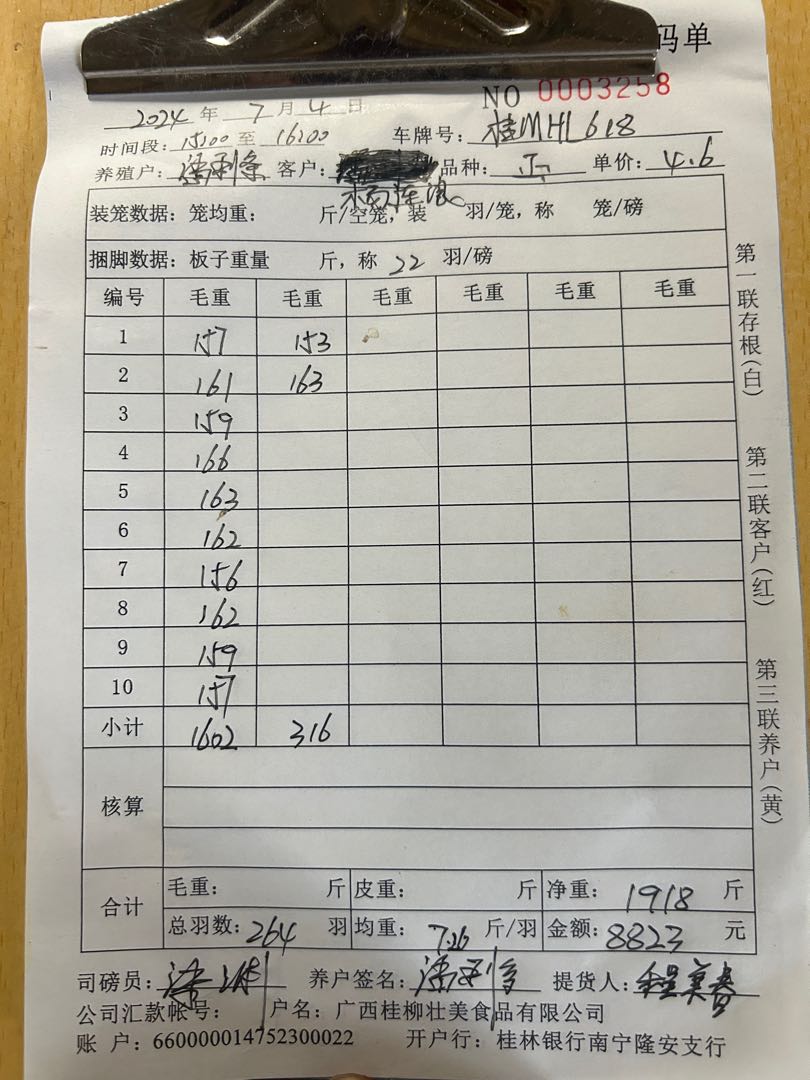 码单
NO 0003258
2024 年 7 月 4 日
时间段: 15:00 至 16:00 车牌号: 桂MHL618
养殖户: 客户: 品种: 正 单价: 4.6
装笼数据: 笼均重: 斤/空笼, 装 羽/笼, 称 笼/磅
捆脚数据: 板子重量 斤, 称 22 羽/磅
编号 毛重 毛重 毛重 毛重 毛重 毛重
1 157 153
2 161 163
3 159
4 166
5 163
6 162
7 156
8 162
9 159
10 157
小计 1602 316
核算
合计 毛重: 斤 皮重: 斤 净重: 1918 斤
总羽数: 264 羽 均重: 7.26 斤/羽 金额: 8823 元
司磅员: 养户签名: 提货人: 程美春
公司汇款帐号: 户名: 广西桂柳壮美食品有限公司
账 户: 660000014752300022 开户行: 桂林银行南宁隆安支行
第一联存根(白)
第二联客户(红)
第三联养户(黄)